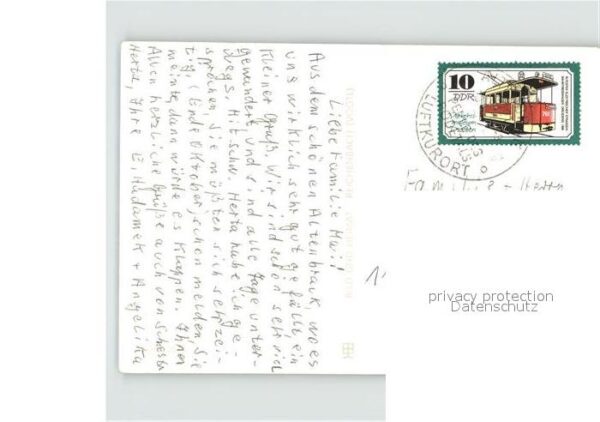 Liebe Familie
Aus dem schönen Altenbrack, wo es
uns wirklich sehr gut gefällt, ein
kleiner Gruß. Wir sind schon sehr viel
gewandert und sind alle Tage unter-
wegs. Mit Schw. Herta habe ich ge-
sprochen, sie müßten sich sehr zei-
tig, (Ende Oktober) schon melden sie
meinte, dann würde es klappen. Ihnen
Allen herzliche Grüße auch von Schwester
Herta, Ihre E. Hudamek + Angelika
10
DDR
LUFTKURORT
Familie + Herrn
privacy protection
Datenschutz